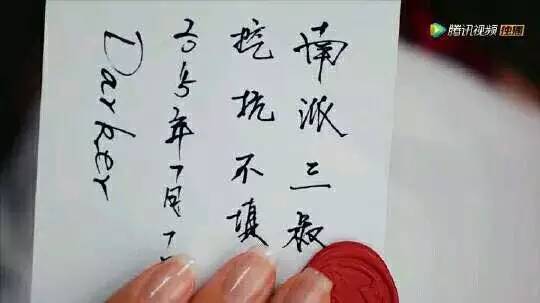 腾讯视频 独播
南派三叔
挖坑不填
2015年7月1
Darker